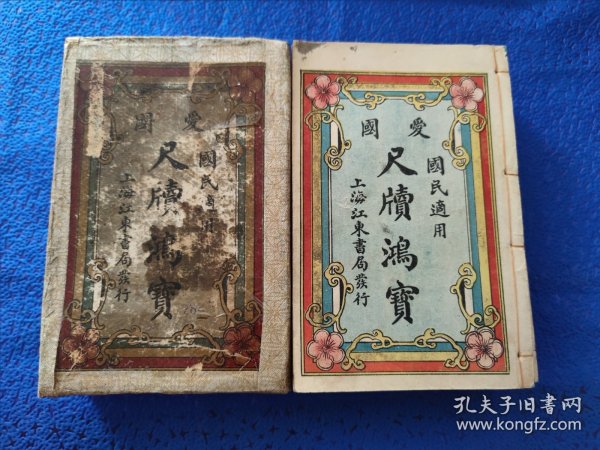 愛國
國民適用
尺牘鴻寶
上海江東書局發行
愛國
國民適用
尺牘鴻寶
上海江東書局發行
孔夫子旧书网
www.kongfz.com